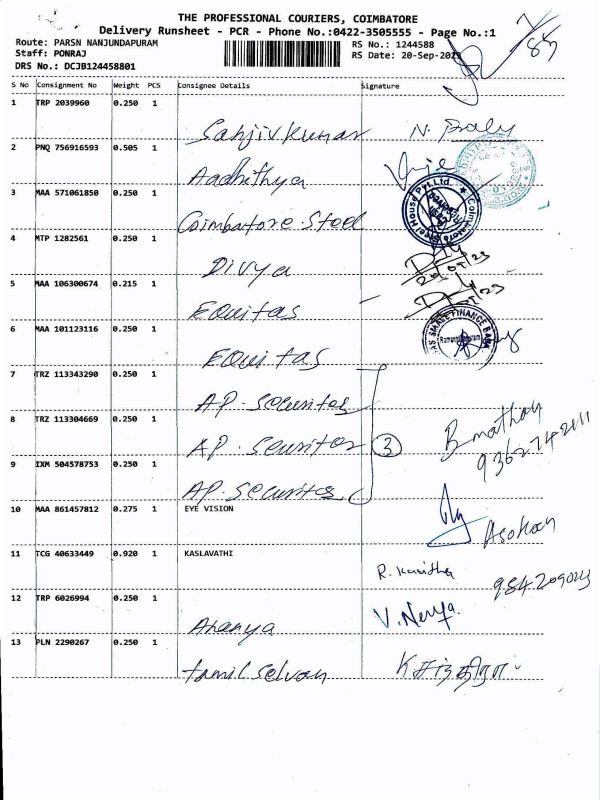 THE PROFESSIONAL COURIERS, COIMBATORE
Delivery Runsheet - PCR - Phone No.:0422-3505555 - Page No.:1
Route: PARSN NANJUNDAPURAM
Staff: PONRAJ
DRS No.: DCJB124458801
RS No.: 1244588
RS Date: 20-Sep-2023
S No Consignment No Weight PCS Consignee Details Signature
1 TRP 2039960 0.250 1
Sanjivkumar
2 PNQ 756916593 0.505 1
Aadhithya
3 MAA 571061850 0.250 1
Coimbatore Steel
4 MTP 1282561 0.250 1
Divya
5 MAA 106300674 0.215 1
EQuitas
6 MAA 101123116 0.250 1
EQuitas
7 TRZ 113343290 0.250 1
AP. Securitas
8 TRZ 113304669 0.250 1
AP. Securitas 3
9 IXM 504578753 0.250 1
AP. Securitas
B mathan
10 MAA 861457812 0.275 1 EYE VISION
Asokan
11 TCG 40633449 0.920 1 KASLAVATHI
R. Kavitha
12 TRP 6026994 0.250 1
Ananya
13 PLN 2290267 0.250 1
Tamil Selvan